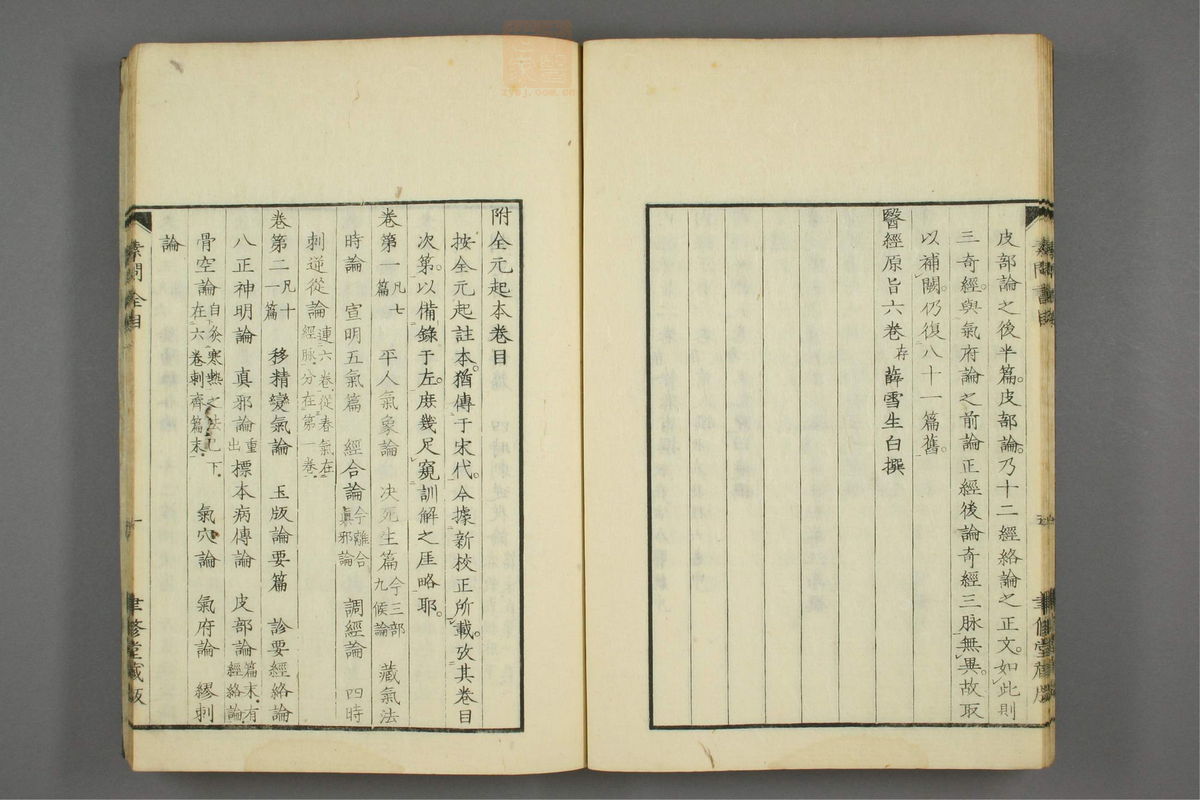 皮部論之後半篇。皮部論。乃十二經絡論之正文。如此則
三奇經。與氣府論之前論正經後論奇經三脉無異。故取
以補闕。仍復八十一篇舊。
醫經原旨六卷存 薛雪生白撰
聿修堂藏版
附全元起本卷目
按全元起註本。猶傳于宋代。今據新校正所載。攷其卷目
次第。以備錄于左。庶幾足窺訓解之厓略耶。
卷第一凡七篇 平人氣象論 决死生篇今三部九候論 藏氣法
時論 宣明五氣篇 經合論今離合眞邪論 調經論 四時
刺逆從論連六卷從春氣在經脉分在第一卷
卷第二凡十一篇 移精變氣論 玉版論要篇 診要經絡論
八正神明論 眞邪論重出 標本病傳論 皮部論篇末有經絡論
骨空論自灸寒熱之法已下在六卷刺齊篇末 氣穴論 氣府論 繆刺
論
素問 全目 一 聿修堂藏版
zysj.com.cn